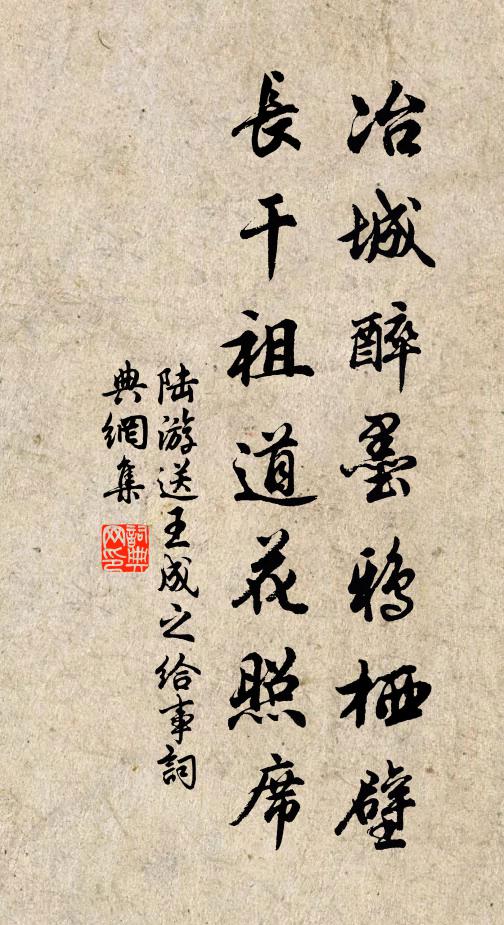 冶城醉墨鴉栖壁
長干祖道花照席
陆游送王成之给事詞
典網集
詞典网印